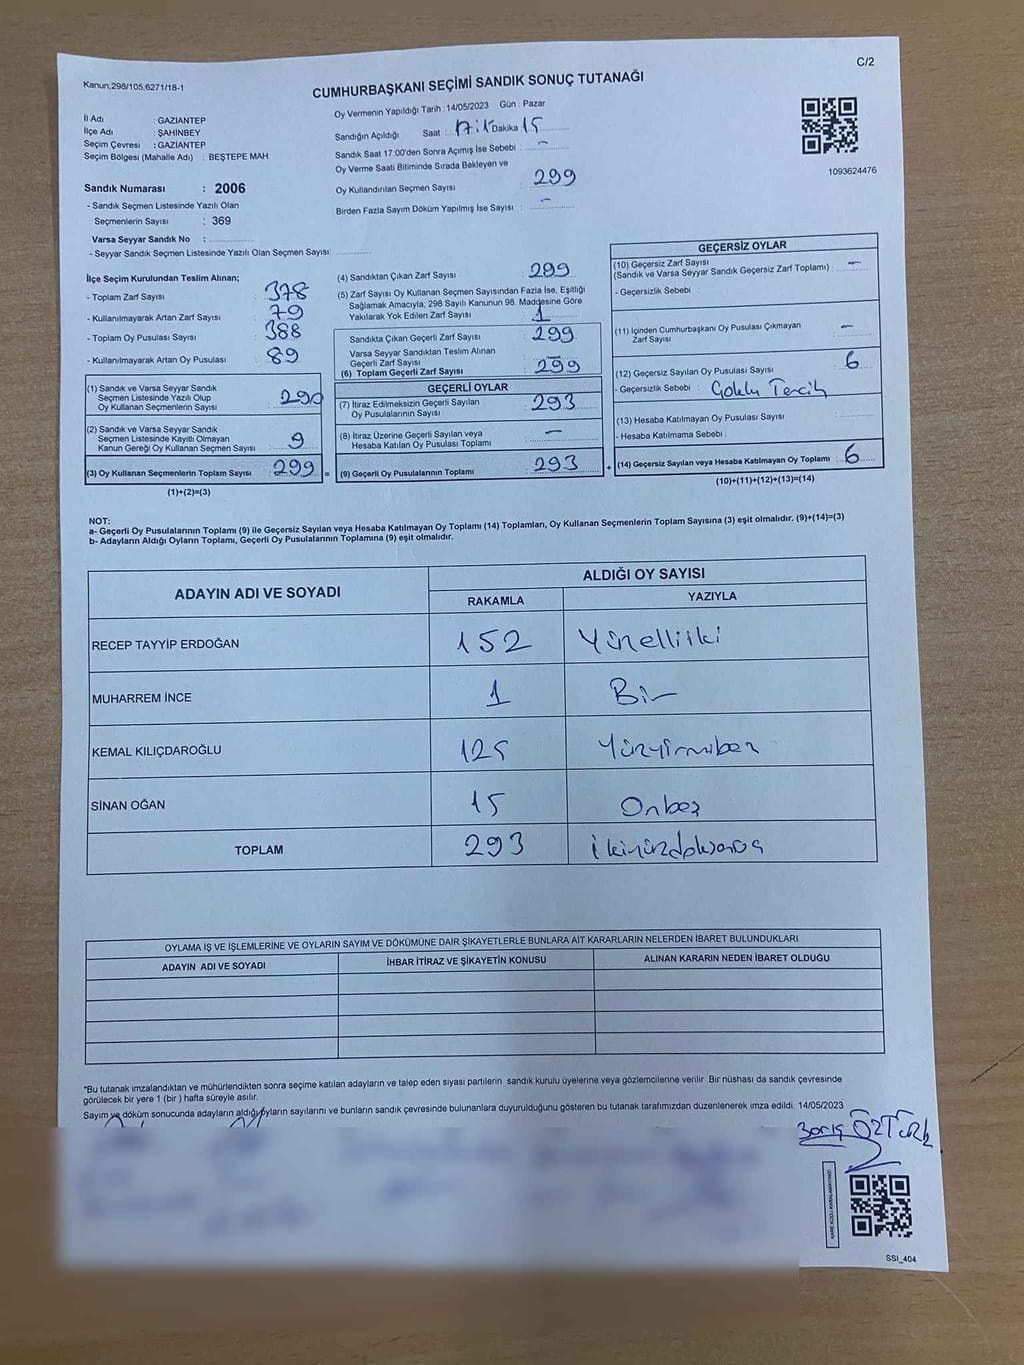 C/2
Kanun:298/105;6271/18-1
CUMHURBAŞKANI SEÇİMİ SANDIK SONUÇ TUTANAĞI
İl Adı : GAZİANTEP
İlçe Adı : ŞAHİNBEY
Seçim Çevresi : GAZİANTEP
Seçim Bölgesi (Mahalle Adı) : BEŞTEPE MAH
Oy Vermenin Yapıldığı Tarih : 14/05/2023 Gün : Pazar
Sandığın Açıldığı Saat : Dakika 15
Sandık Saat 17:00'den Sonra Açılmış İse Sebebi : -
Oy Verme Saati Bitiminde Sırada Bekleyen ve
Oy Kullandırılan Seçmen Sayısı 299
Birden Fazla Sayım Döküm Yapılmış İse Sayısı : -
1093624476
Sandık Numarası : 2006
- Sandık Seçmen Listesinde Yazılı Olan
Seçmenlerin Sayısı : 369
Varsa Seyyar Sandık No :
- Seyyar Sandık Seçmen Listesinde Yazılı Olan Seçmen Sayısı:
İlçe Seçim Kurulundan Teslim Alınan;
- Toplam Zarf Sayısı : 378
- Kullanılmayarak Artan Zarf Sayısı : 79
- Toplam Oy Pusulası Sayısı : 388
- Kullanılmayarak Artan Oy Pusulası : 89
(1) Sandık ve Varsa Seyyar Sandık
Seçmen Listesinde Yazılı Olup
Oy Kullanan Seçmenlerin Sayısı : 290
(2) Sandık ve Varsa Seyyar Sandık
Seçmen Listesinde Kayıtlı Olmayan
Kanun Gereği Oy Kullanan Seçmen Sayısı : 9
(3) Oy Kullanan Seçmenlerin Toplam Sayısı : 299 =
(1)+(2)=(3)
(4) Sandıktan Çıkan Zarf Sayısı : 299
(5) Zarf Sayısı Oy Kullanan Seçmen Sayısından Fazla İse, Eşitliği
Sağlamak Amacıyla; 298 Sayılı Kanunun 98. Maddesine Göre
Yakılarak Yok Edilen Zarf Sayısı : 1
Sandıkta Çıkan Geçerli Zarf Sayısı : 299
Varsa Seyyar Sandıktan Teslim Alınan
Geçerli Zarf Sayısı
(6) Toplam Geçerli Zarf Sayısı : 299
GEÇERLİ OYLAR
(7) İtiraz Edilmeksizin Geçerli Sayılan
Oy Pusulalarının Sayısı : 293
(8) İtiraz Üzerine Geçerli Sayılan veya
Hesaba Katılan Oy Pusulası Toplamı : -
(9) Geçerli Oy Pusulalarının Toplamı : 293 +
GEÇERSİZ OYLAR
(10) Geçersiz Zarf Sayısı
(Sandık ve Varsa Seyyar Sandık Geçersiz Zarf Toplamı) : -
- Geçersizlik Sebebi :
(11) İçinden Cumhurbaşkanı Oy Pusulası Çıkmayan
Zarf Sayısı : -
(12) Geçersiz Sayılan Oy Pusulası Sayısı : 6
- Geçersizlik Sebebi : Çoklu Tercih
(13) Hesaba Katılmayan Oy Pusulası Sayısı :
- Hesaba Katılmama Sebebi :
(14) Geçersiz Sayılan veya Hesaba Katılmayan Oy Toplamı : 6
(10)+(11)+(12)+(13)=(14)
NOT:
a- Geçerli Oy Pusulalarının Toplamı (9) ile Geçersiz Sayılan veya Hesaba Katılmayan Oy Toplamı (14) Toplamları, Oy Kullanan Seçmenlerin Toplam Sayısına (3) eşit olmalıdır. (9)+(14)=(3)
b- Adayların Aldığı Oyların Toplamı, Geçerli Oy Pusulalarının Toplamına (9) eşit olmalıdır.
ADAYIN ADI VE SOYADI
ALDIĞI OY SAYISI
RAKAMLA YAZIYLA
RECEP TAYYİP ERDOĞAN 152 Yüzelliiki
MUHARREM İNCE 1 Bir
KEMAL KILIÇDAROĞLU 125 Yüzyirmibeş
SİNAN OĞAN 15 Onbeş
TOPLAM 293
OYLAMA İŞ VE İŞLEMLERİNE VE OYLARIN SAYIM VE DÖKÜMÜNE DAİR ŞİKAYETLERLE BUNLARA AİT KARARLARIN NELERDEN İBARET BULUNDUKLARI
ADAYIN ADI VE SOYADI İHBAR İTİRAZ VE ŞİKAYETİN KONUSU ALINAN KARARIN NEDEN İBARET OLDUĞU
*Bu tutanak imzalandıktan ve mühürlendikten sonra seçime katılan adayların ve talep eden siyasi partilerin sandık kurulu üyelerine veya gözlemcilerine verilir. Bir nüshası da sandık çevresinde
görülecek bir yere 1 (bir ) hafta süreyle asılır.
Sayım ve döküm sonucunda adayların aldığı oyların sayılarını ve bunların sandık çevresinde bulunanlara duyurulduğunu gösteren bu tutanak tarafımızdan düzenlenerek imza edildi. 14/05/2023
Barış ÖZTÜRK
SSI_404